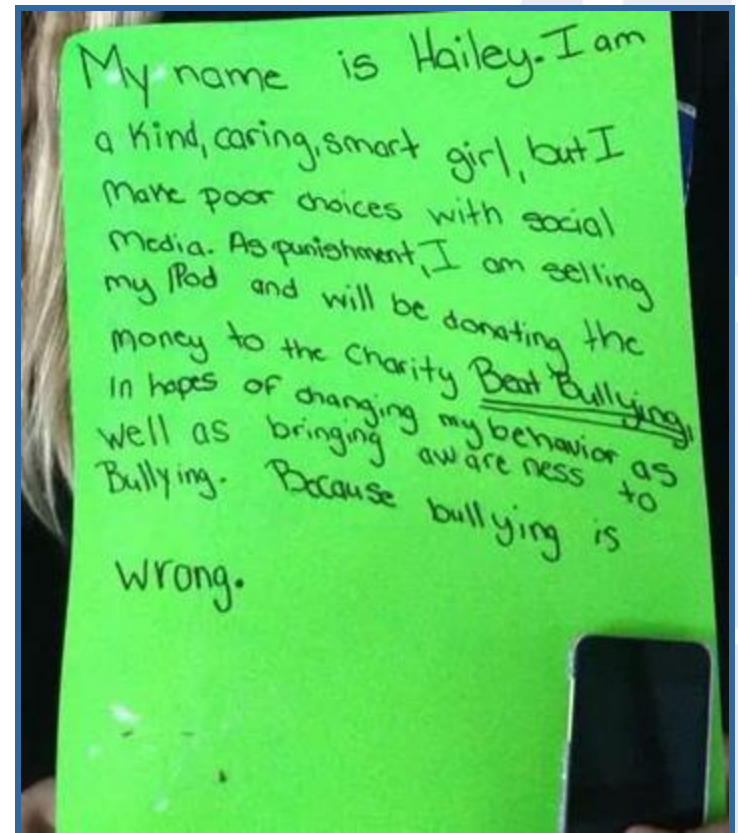 My name is Hailey. I am
a kind, caring, smart girl, but I
make poor choices with social
media. As punishment, I am selling
my IPod and will be donating the
money to the Charity Beat Bullying,
in hopes of changing my behavior as
well as bringing awareness to
Bullying. Because bullying is
wrong.